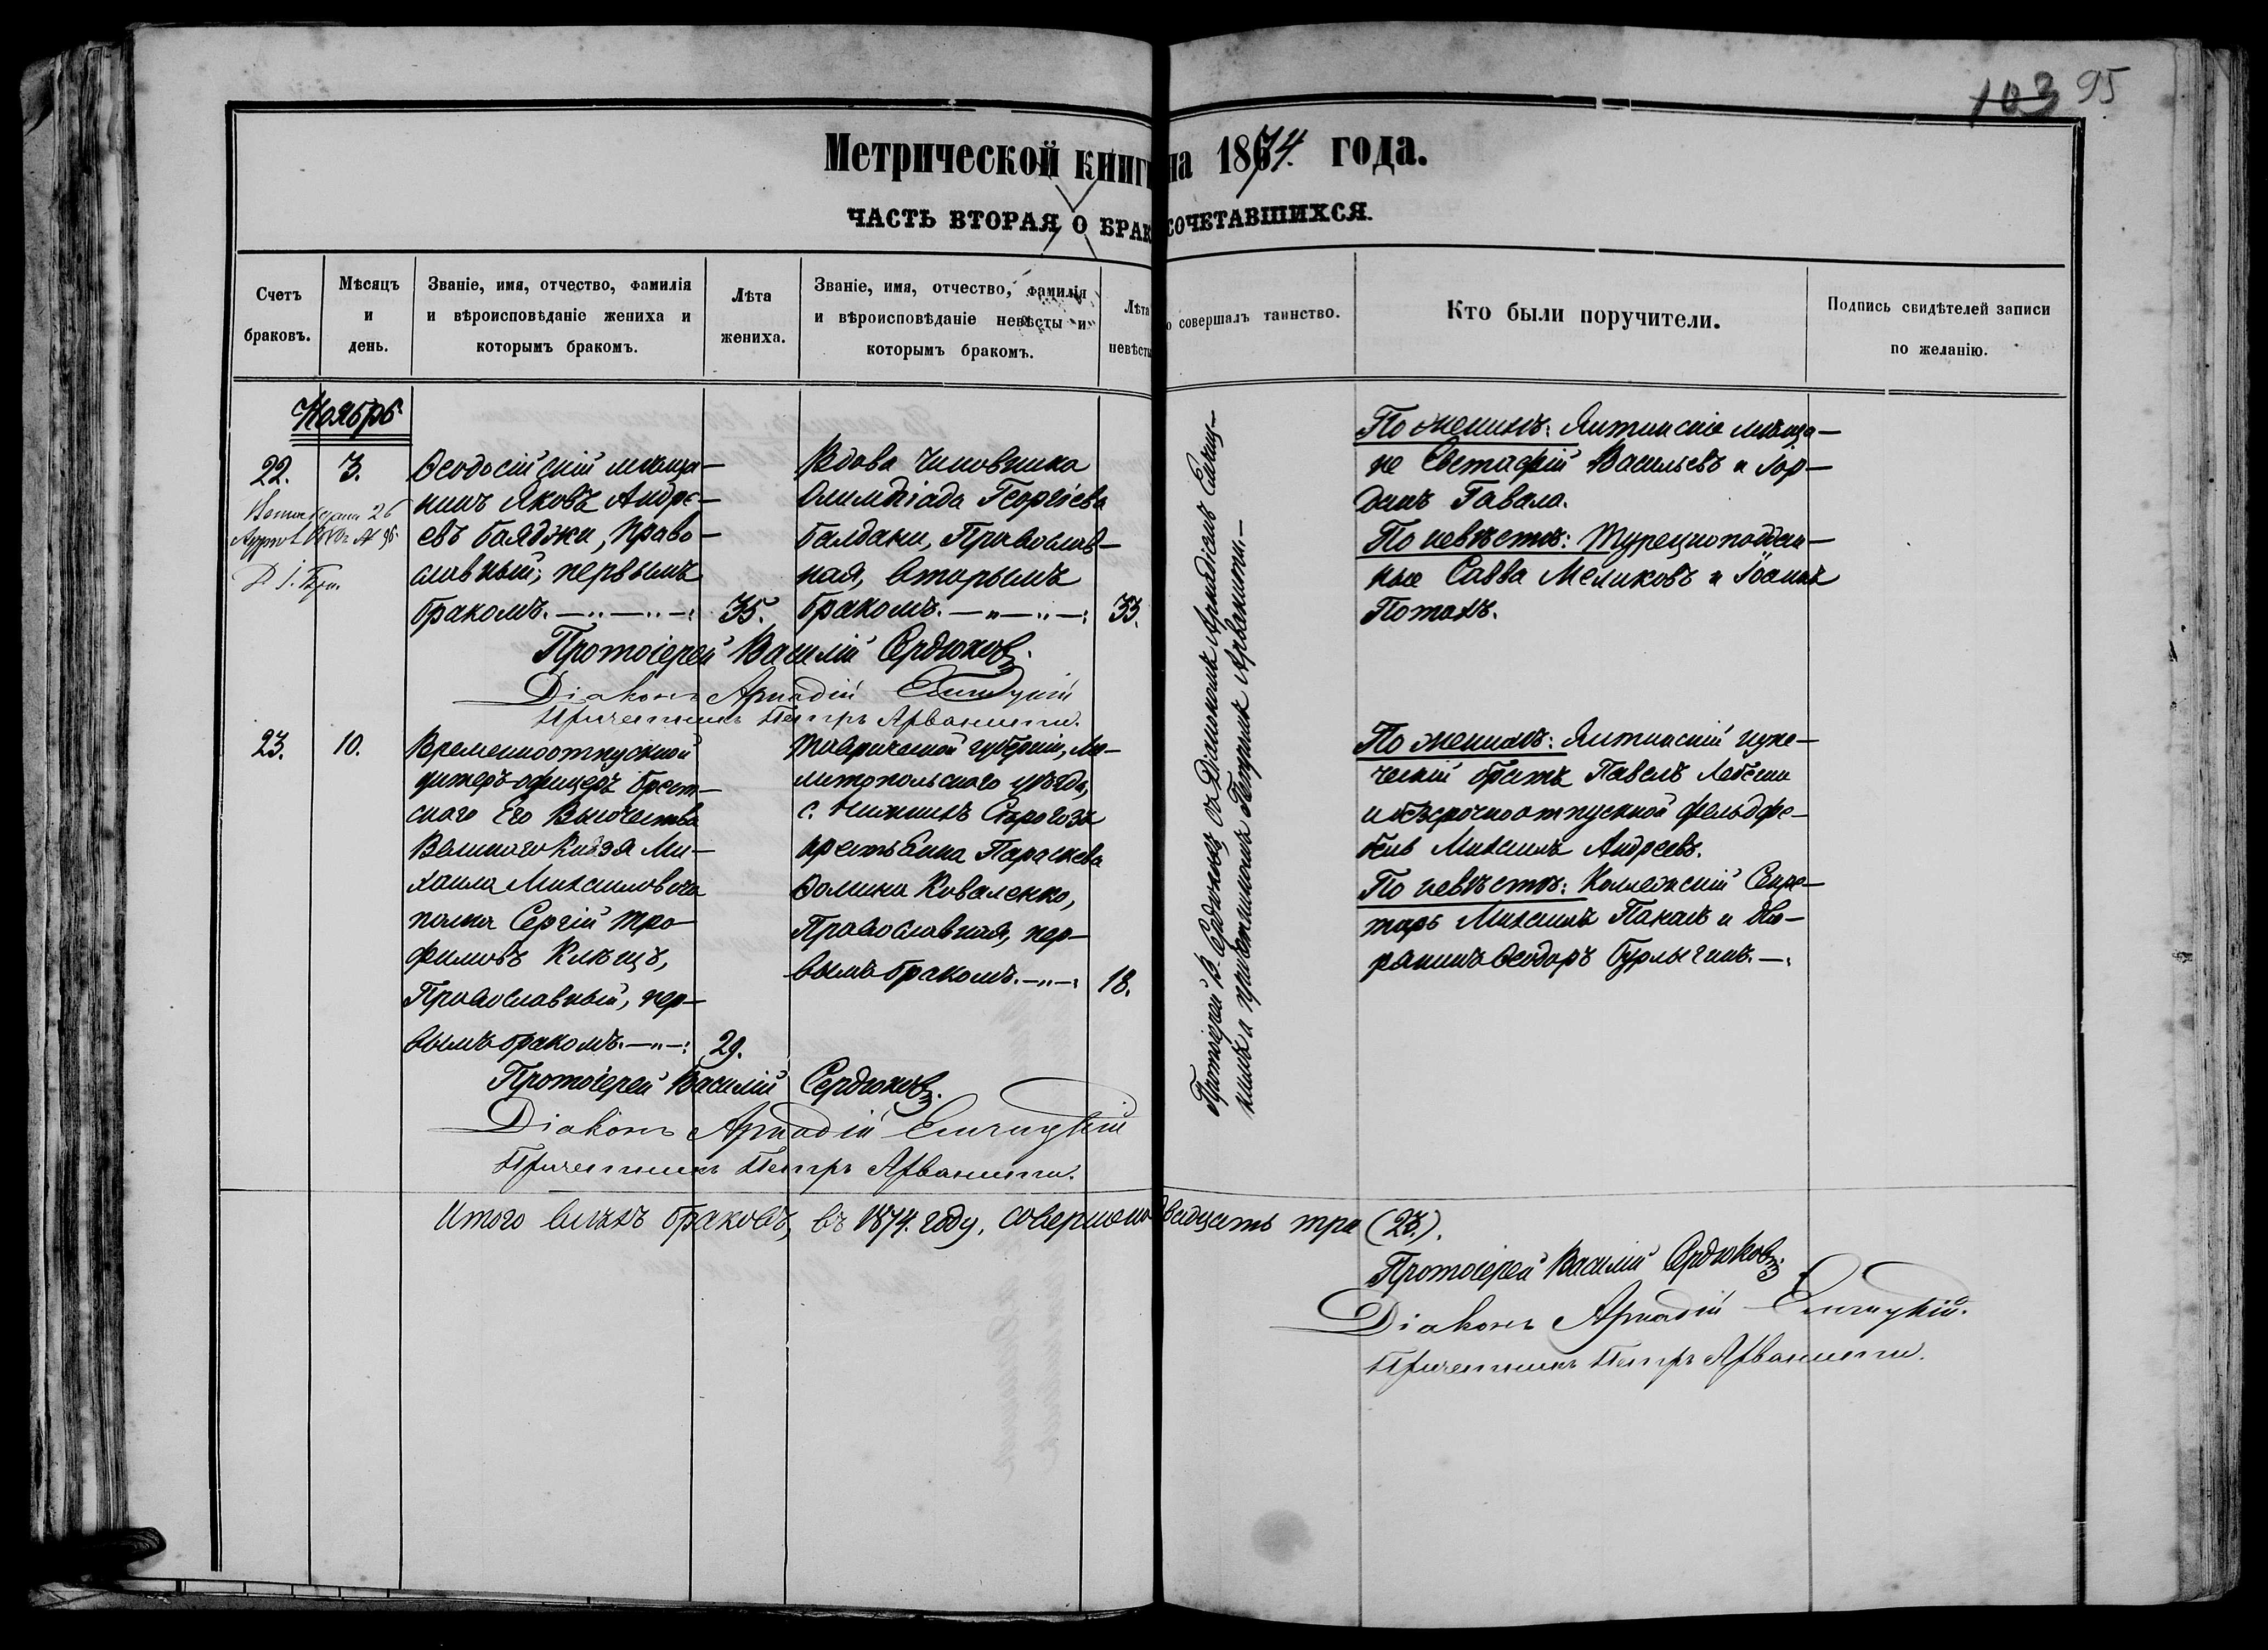 103 95
Метрической книги на 1874. года.
ЧАСТЬ ВТОРАЯ, О БРАКОСОЧЕТАВШИХСЯ.
Счетъ браковъ.
Мѣсяцъ и день.
Званіе, имя, отчество, фамилія и вѣроисповѣданіе жениха и которымъ бракомъ.
Лѣта жениха.
Званіе, имя, отчество, фамилія и вѣроисповѣданіе невѣсты и которымъ бракомъ.
Лѣта невѣсты
совершалъ таинство.
Кто были поручители.
Подпись свидѣтелей записи по желанію.
Ноябрь
22.
3.
Ѳеодосійскій мѣща-
нинъ Яковъ Андре-
евъ Баяджи, Право-
славный; первымъ
бракомъ.
35.
Вдова чиновника
Олимпіада Георгіева
Балдани, Православ-
ная, вторымъ
бракомъ.
33.
По женихѣ: Ялтинскіе мѣща-
не Евстафій Васильевъ и Іор-
данъ Гавала.
По невѣстѣ: Турецкоподдан-
ные Савва Меликовъ и Іоаннъ
Потахъ.
Протоіерей Василій Сердюковъ.
Діаконъ Аркадій
Причетникъ Петръ Арванити.
23.
10.
Временноотпускной
унтеръ-офицеръ Брест-
скаго Его Высочества
Великаго Князя Ми-
хаила Михаиловича
полка Сергій Тро-
фимовъ Клѣщъ,
Православный, пер-
вымъ бракомъ.
29.
Таврической губерніи, Ме-
литопольского уѣзда,
с. Нижнихъ Сѣрогозъ
крестьянка Параскева
Фомина Коваленко,
Православная, пер-
вымъ бракомъ.
18.
Протоіерей В. Сердюковъ съ Діакономъ Аркадіемъ
и причетникомъ Петромъ Арванити.
По женихѣ: Ялтинскій купе-
ческій братъ Павелъ
и безсрочноотпускной фельдфе-
бель Михаилъ Андреевъ.
По невѣстѣ: Коллежскій Секре-
тарь Михаилъ Пакалъ и дво-
рянинъ Ѳеодоръ Бурлычинъ.
Протоіерей Василій Сердюковъ.
Діаконъ Аркадій
Причетникъ Петръ Арванити.
Итого всѣхъ браковъ, въ 1874. году, совершено двадцать три (23).
Протоіерей Василій Сердюковъ.
Діаконъ Аркадій
Причетникъ Петръ Арванити.